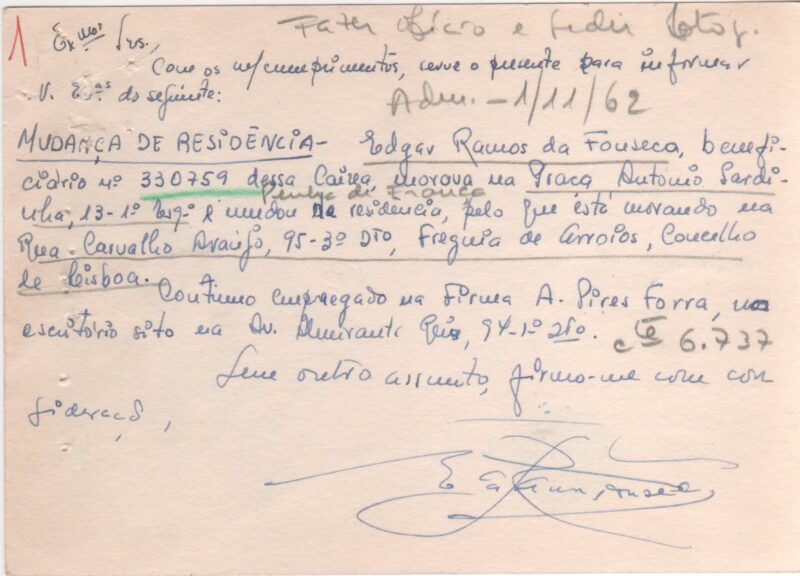 1
Fazer ofício e pedir
Exmos Srs.,
Com os m/cumprimentos, serve o presente para informar
V. Exas do seguinte:
Adm. - 1/11/62
MUDANÇA DE RESIDÊNCIA - Edgar Ramos da Fonseca, benefi-
ciário nº 330759 dessa Caixa, morava na Praça António Sardi-
Penha de França
nha, 13-1º Esqº e mudou de residencia, pelo que está morando na
Rua Carvalho Araújo, 95-3º Dto, Freguia de Arroios, Concelho
de Lisboa.
Continuo empregado na Firma A. Pires Forra, no
escritório sito na Av. Almirante Reis, 94-1º Dto.
cte 6.737
Sem outro assunto, firmo-me com con
sideração,